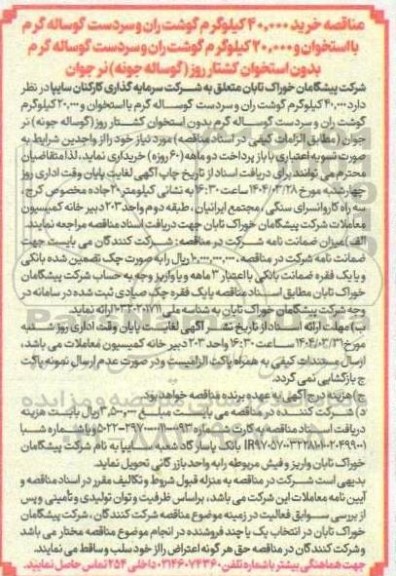 مناقصه خرید ۴۰,۰۰۰ کیلوگرم گوشت ران و سردست گوساله گرم
با استخوان و ۲۰,۰۰۰ کیلوگرم گوشت ران و سردست گوساله گرم
بدون استخوان کشتار روز (گوساله جونه) نر جوان
شرکت پیشگامان خوراک تابان متعلق به شرکت سرمایه گذاری کارکنان سایپا در نظر
دارد ۴۰,۰۰۰ کیلوگرم گوشت ران و سردست گوساله گرم با استخوان و ۲۰,۰۰۰ کیلوگرم
گوشت ران و سردست گوساله گرم بدون استخوان کشتار روز (گوساله جونه) نر
جوان (مطابق الزامات کیفی در اسناد مناقصه) مورد نیاز خود را از واجدین شرایط به
صورت تسویه اعتباری با باز پرداخت دو ماهه (۶۰ روزه) خریداری نماید، لذا متقاضیان
محترم می توانند برای دریافت اسناد از تاریخ چاپ آگهی لغایت پایان وقت اداری روز
چهارشنبه مورخ ۱۴۰۴/۰۳/۲۸ ساعت ۱۶:۳۰ به نشانی کیلومتر ۲۰ جاده مخصوص کرج،
سه راه کاروانسرای سنگی، مجتمع ایرانیان، طبقه دوم واحد ۲۰۳ دبیر خانه کمیسیون
معاملات شرکت پیشگامان خوراک تابان جهت دریافت اسناد مناقصه مراجعه نمایند.
الف) میزان ضمانت نامه شرکت در مناقصه: شرکت کنندگان می بایست جهت
ضمانت نامه شرکت در مناقصه، ۱۰,۰۰۰,۰۰۰,۰۰۰ ریال را به صورت چک تضمین شده بانکی
و یا یک فقره ضمانت بانکی با اعتبار ۳ ماهه و یا واریز وجه به حساب شرکت پیشگامان
خوراک تابان مطابق اسناد مناقصه یا یک فقره چک صیادی ثبت شده در سامانه در
وجه شرکت پیشگامان خوراک تابان به شناسه ملی ارائه نماید.
ب) مهلت ارائه اسناد از تاریخ نشر آگهی لغایت پایان وقت اداری روز شنبه
مورخ ۱۴۰۴/۰۳/۳۱ ساعت ۱۶:۳۰ واحد ۲۰۳ دبیر خانه کمیسیون معاملات می باشد،
ارسال مستندات کیفی به همراه پاکت الزامیست و در صورت عدم ارسال نمونه پاکت
ج بازگشایی نمی گردد.
ج) هزینه درج آگهی به عهده برنده مناقصه خواهد بود.
د) شرکت کننده در مناقصه می بایست مبلغ ۳,۵۰۰,۰۰۰ ریال بابت هزینه
دریافت اسناد مناقصه به کارت شماره و یا شماره شبا
بانک پاسارگاد شعبه سایپا به نام شرکت پیشگامان
خوراک تابان واریز و فیش مربوطه را به واحد بازرگانی تحویل نماید.
بدیهی است شرکت در مناقصه به منزله قبول شروط و تکالیف مقرر در اسناد مناقصه و
آیین نامه معاملات این شرکت می باشد، براساس ظرفیت و توان تولیدی و تأمینی و پس
از بررسی سوابق فعالیت در زمینه موضوع مناقصه شرکت کنندگان، شرکت پیشگامان
خوراک تابان در انتخاب یک یا چند فروشنده در انجام موضوع مناقصه مختار می باشد
و شرکت کنندگان در مناقصه حق هر گونه اعتراض را از خود سلب و ساقط می نمایند.
جهت هماهنگی بیشتر با شماره تلفن ۰۲۱۴۶۰۷۴۳۶۰ داخلی ۲۵۴ تماس حاصل نمایید.